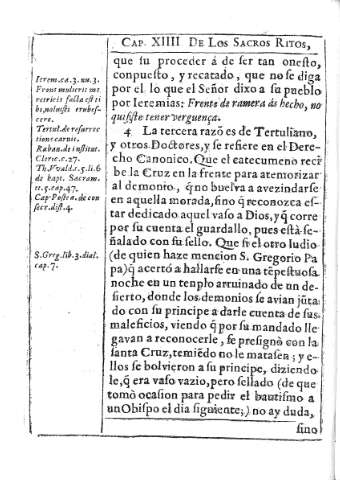 CAP. XIIII DE LOS SACROS RITOS,
que su proceder á de ser tan onesto,
conpuesto, y recatado, que no se diga
por el lo que el Señor dixo a su pueblo
por Ieremias: Frente de ramera ás hecho, no
quisiste tener verguença.
4 La tercera razõ es de Tertuliano,
y otros Doctores, y se refiere en el Dere-
cho Canonico. Que el catecumeno recĩ-
be la Cruz en la frente para atemorizar
al demonio, q̃ no buelva a avezindarse
en aquella morada, sino q̃ reconozca es-
tar dedicado aquel vaso a Dios, y q̃ corre
por su cuenta el guardallo, pues està se-
ñalado con su sello. Que si el otro Iudio
(de quien haze mencion S. Gregorio Pa
pa) q̃ acertó a hallarse en una tẽpestuosa
noche en un tenplo arruinado de un de-
sierto, donde los demonios se avian jũta
do con su principe a darle cuenta de sus
maleficios, viendo q̃ por su mandado lle
gavan a reconocerle, se presignò con la
santa Cruz, temiẽdo le matasen; y e-
llos se bolvieron a su principe, diziendo
le, q̃ era vaso vazio, pero sellado (de que
tomò ocasion para pedir el bautismo a
un Obispo el dia siguiente;) no ay duda,
sino
Ierem. ca. 3. nu. 3.
Frons mulieris me
retricis facta est ti
bi, noluisti erubes-
cere.
Tertul. de resurre
ctione carnis.
Raban. de institut.
Cleric. c. 27.
Th. Vvald. to. 5. li. 6
de bapt. Sacram.
tt. 5. cap. 47.
Cap. Postea. de con
secr. dist. 4.
S. Greg. lib. 3. dial.
cap. 7.